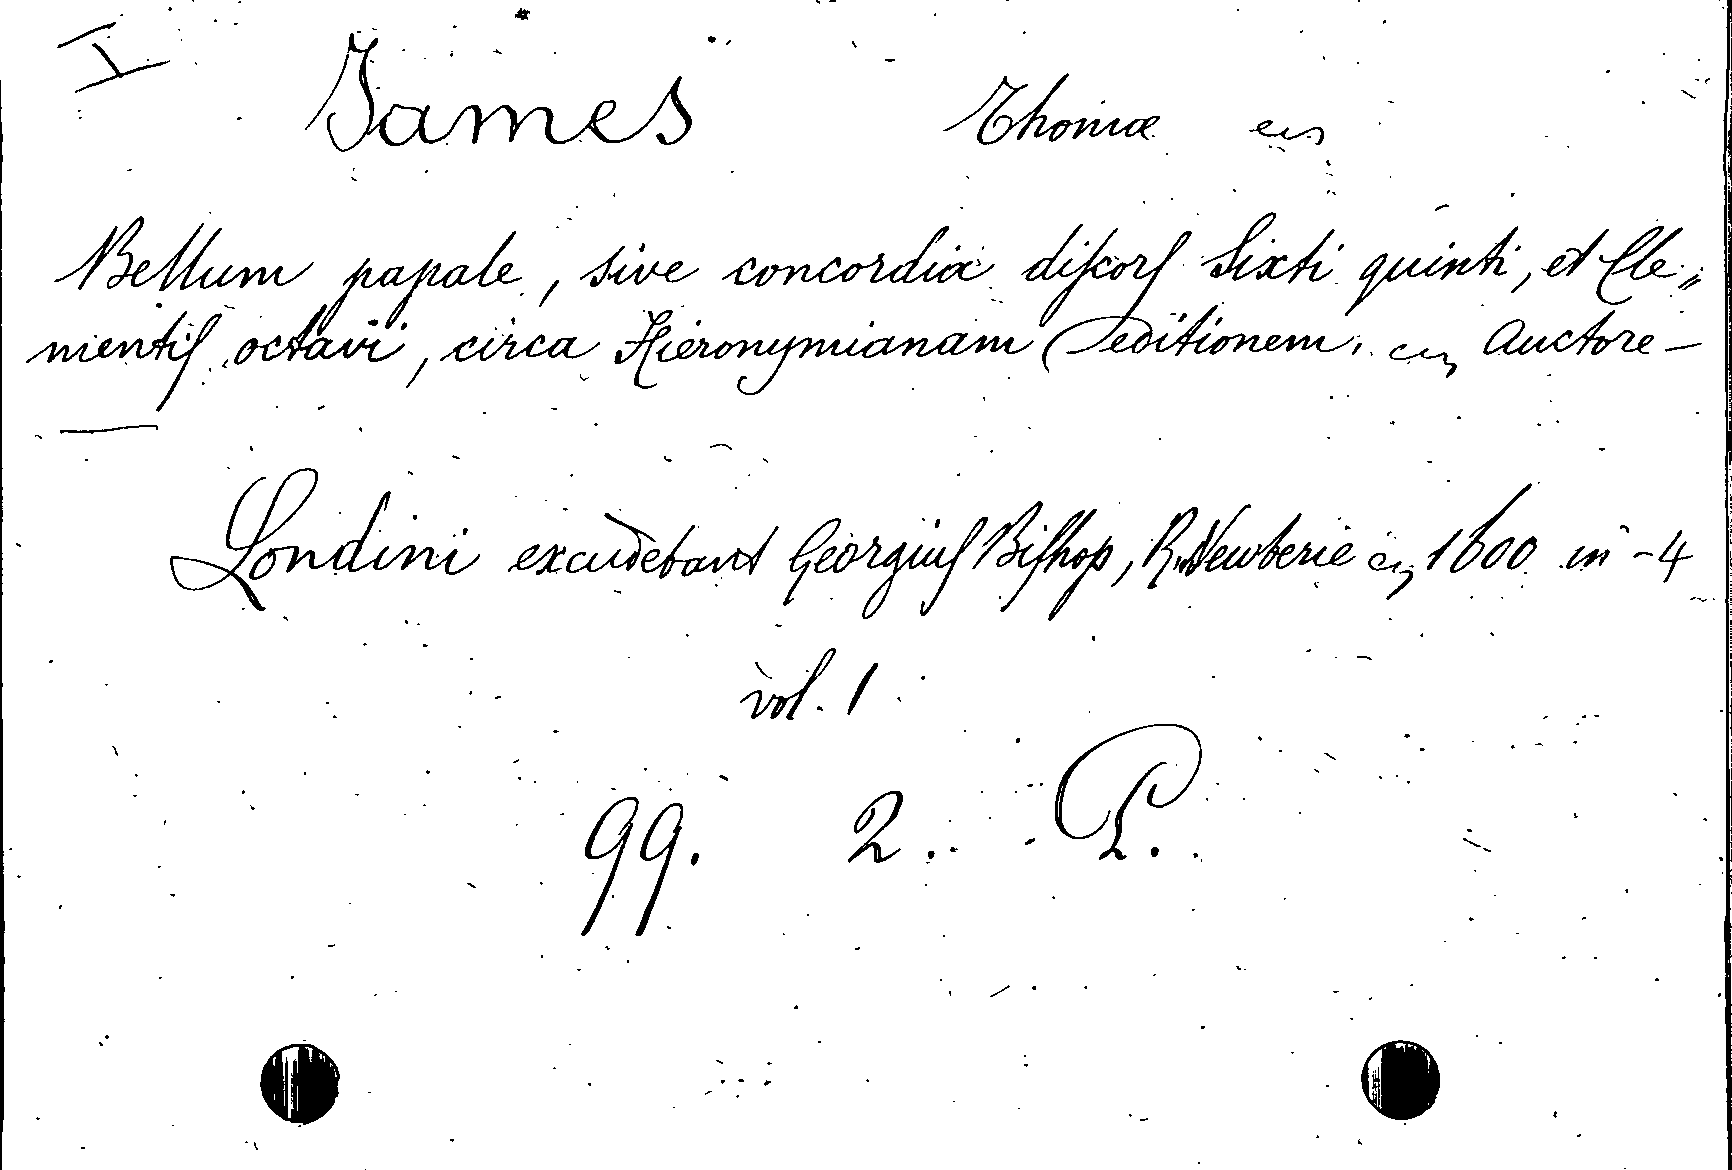 I
James Thomæ
Bellum papale, sive concordia discors Sixti quinti, et Cle„
mentis octavi, circa Hieronymianam editionem. Auctore —
Londini excudebant Georgius Bishop, R. Newberie 1600 in-4
vol. 1
99. 2. P.